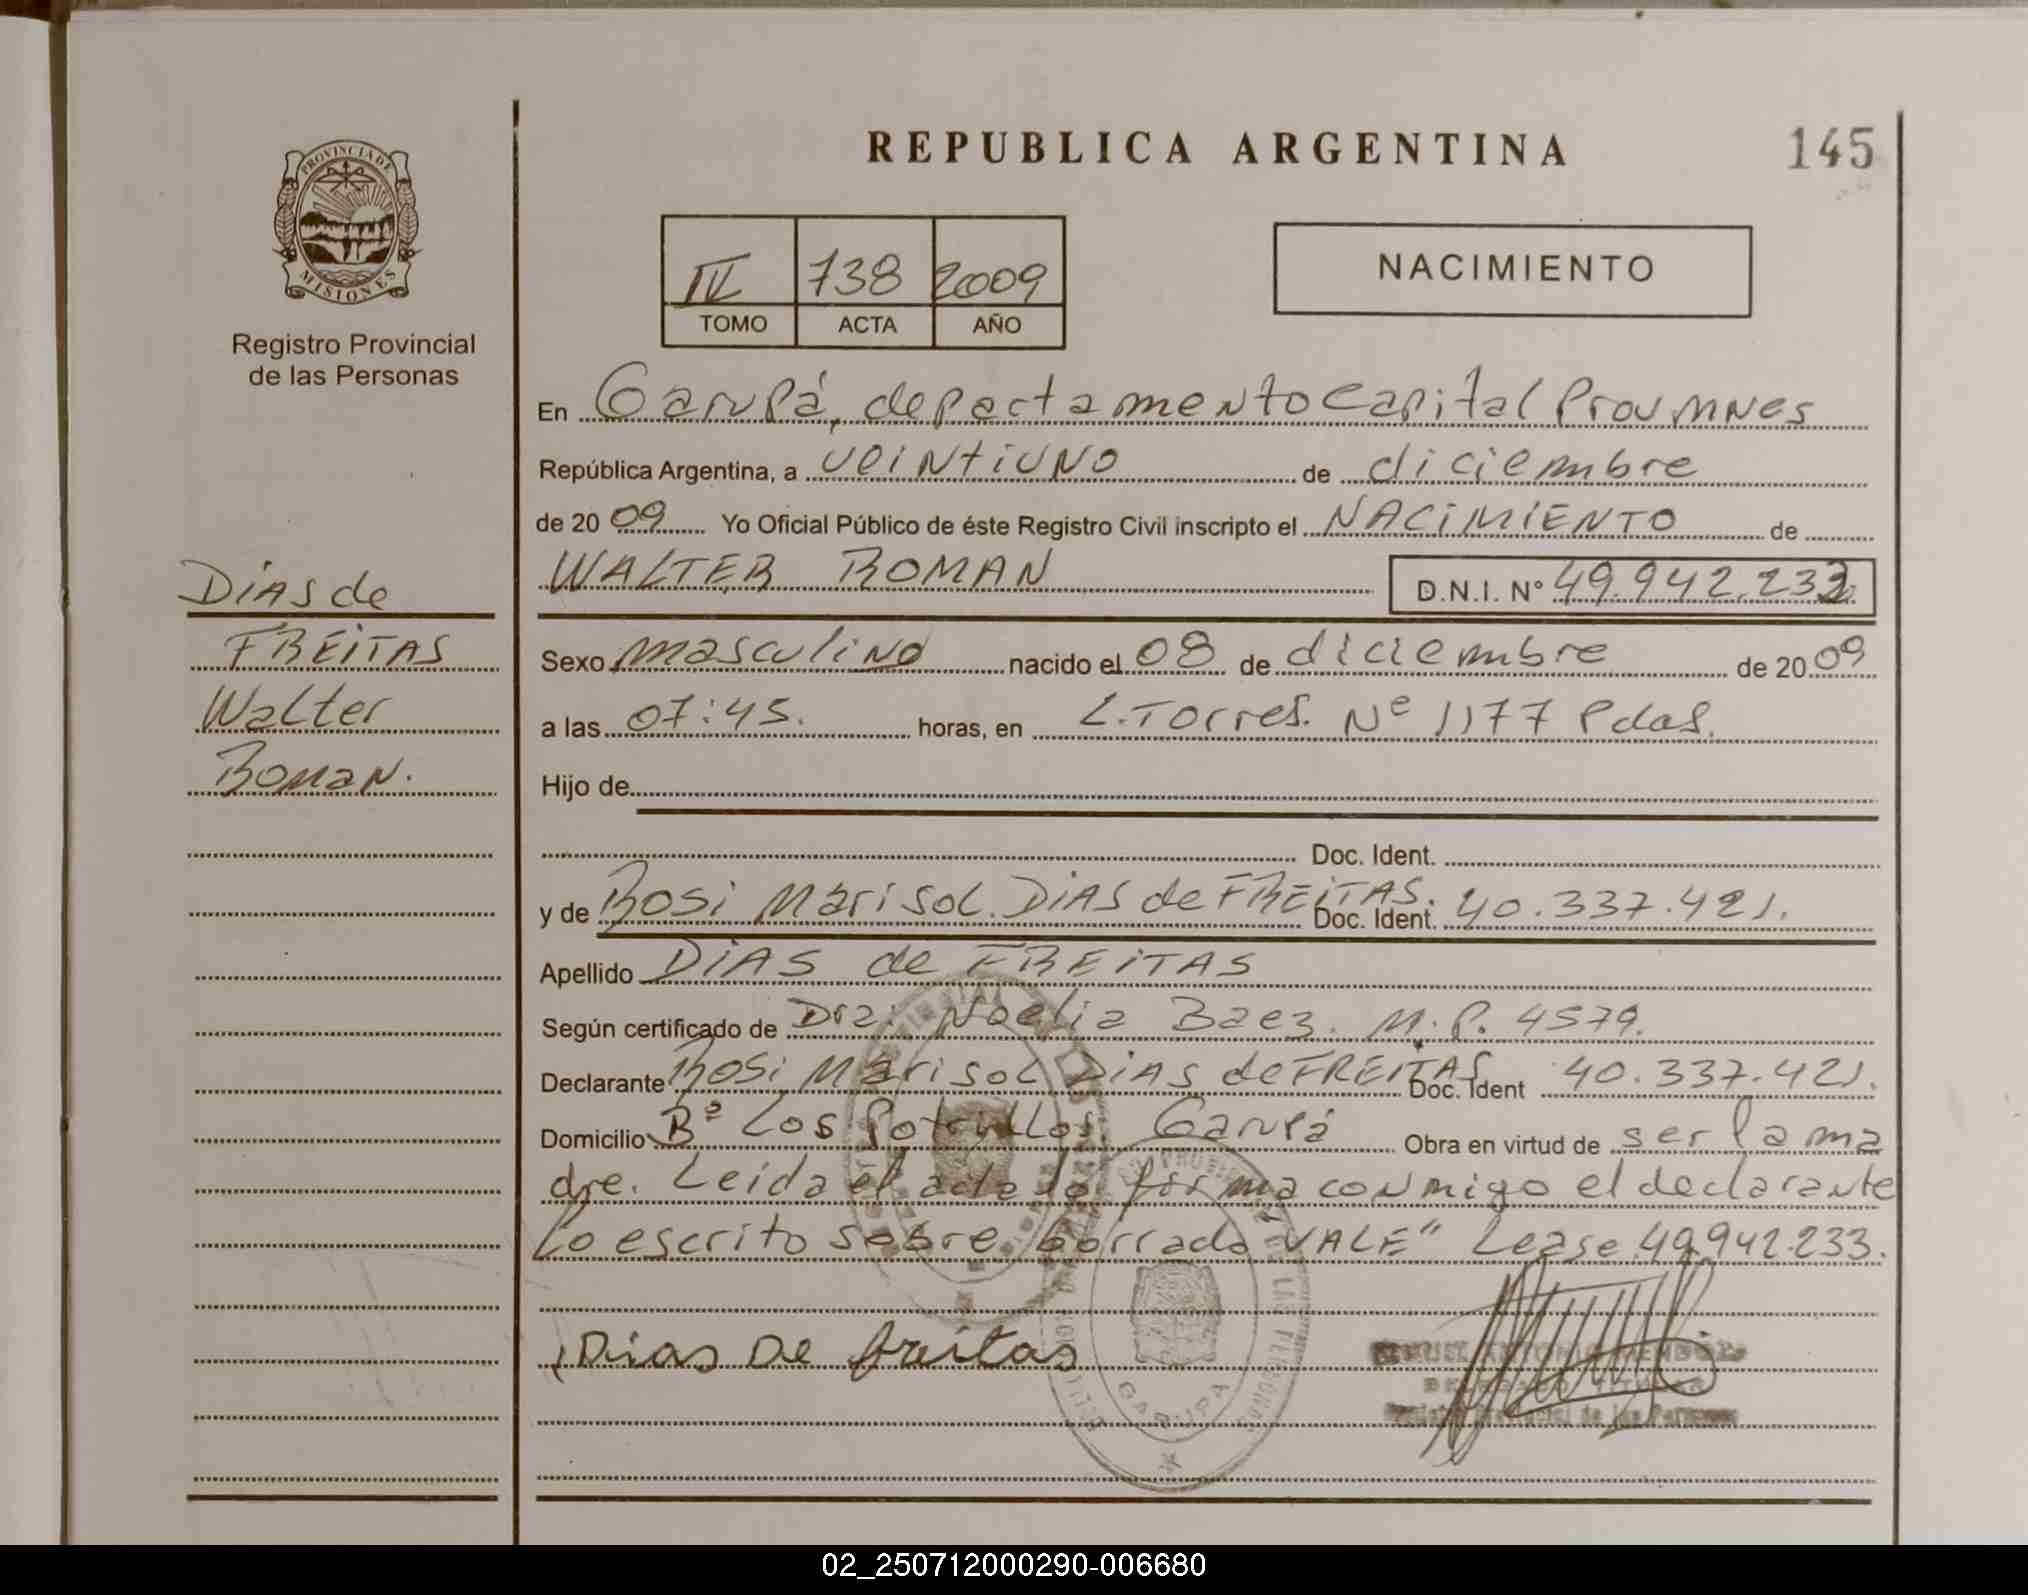 REPUBLICA ARGENTINA
145
PROVINCIA DE
MISIONES
Registro Provincial
de las Personas
IV 738 2009
TOMO ACTA AÑO
NACIMIENTO
En Garupá, departamento Capital Prov Mnes
República Argentina, a veintiuno de diciembre
de 2009 Yo Oficial Público de éste Registro Civil inscripto el NACIMIENTO de
WALTER ROMAN D.N.I. Nº 49.942.233
Dias de
FREITAS
Walter
Roman.
Sexo masculino nacido el 08 de diciembre de 2009
a las 07:45. horas, en L. Torres. Nº 1177 Pdas.
Hijo de
Doc. Ident.
y de Rosi Marisol. DIAS de FREITAS. Doc. Ident. 40.337.421.
Apellido DIAS de FREITAS
Según certificado de Dra: Noelia Baez. M.P. 4579.
Declarante Rosi Marisol DIAS de FREITAS Doc. Ident 40.337.421.
Domicilio Bº Los Potrillos. Garupá Obra en virtud de ser la ma
dre. Leida el acta la firma conmigo el declarante
Lo escrito sobre borrado VALE" Lease 49.942.233.
Dias De freitas
GARUPA
02_250712000290-006680